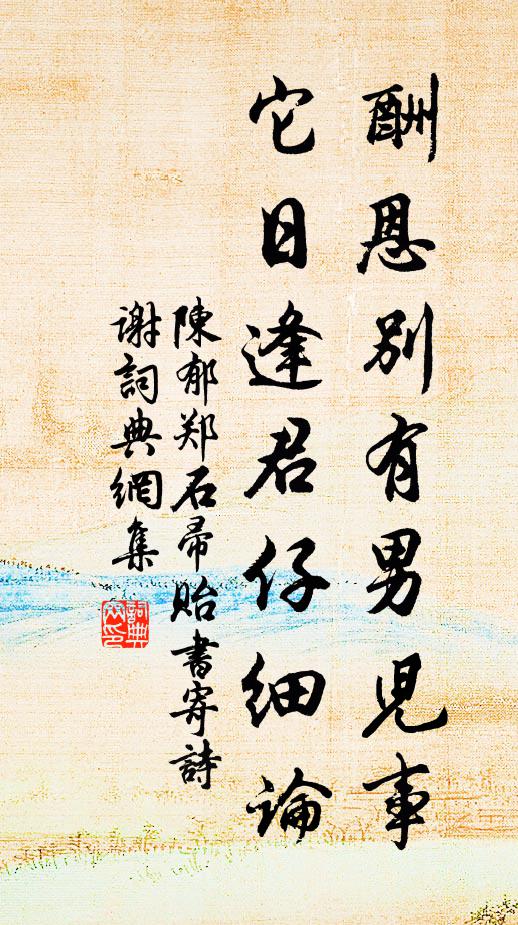 酬恩別有男兒事
它日逢君仔細論
陳郁郑石帚貽書寄詩
謝詞典網集
詞典